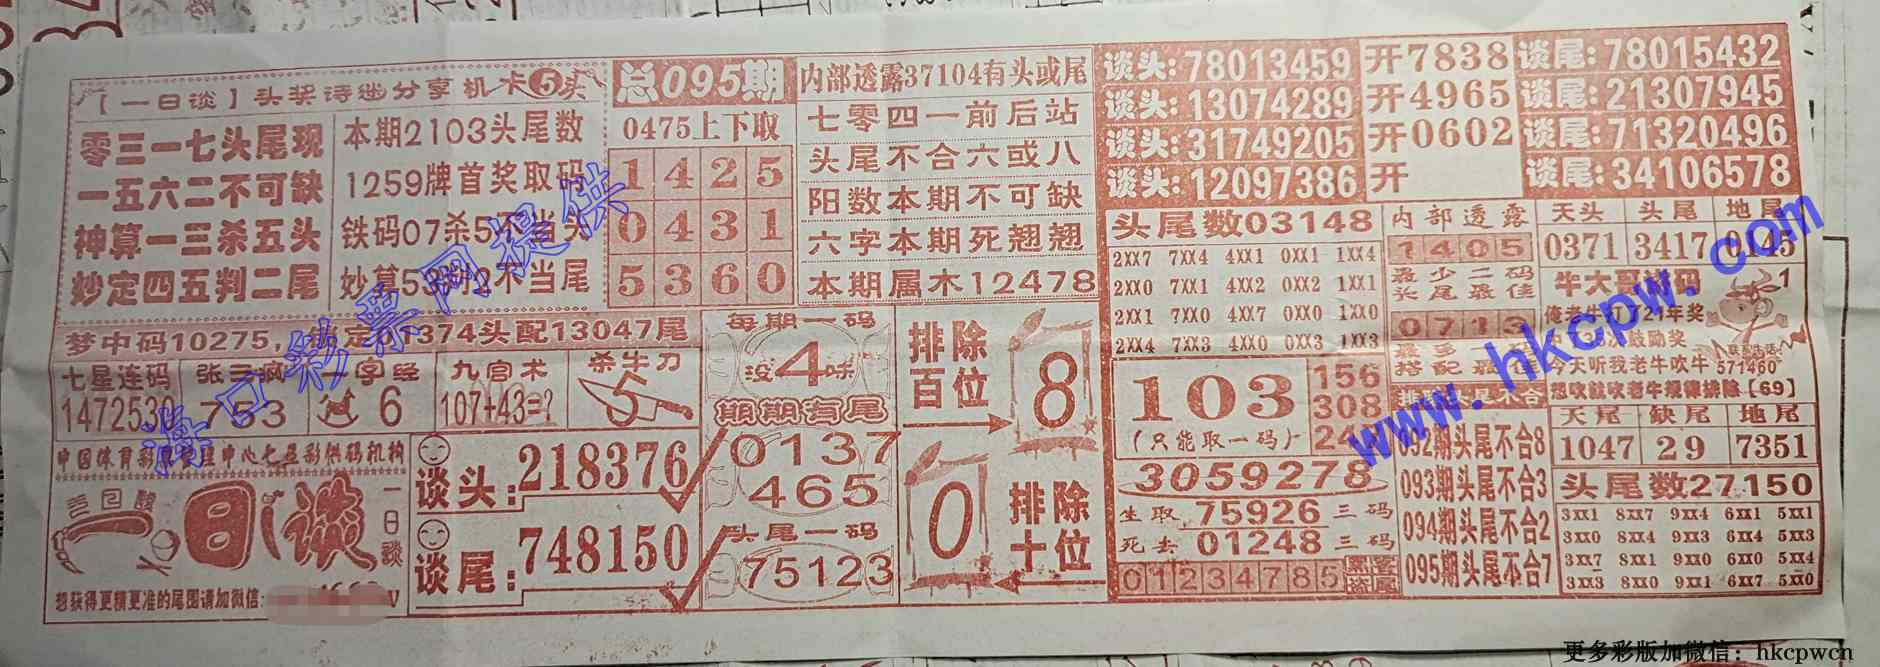 【一日谈】头奖诗谜分享机卡5头
零三一七头尾现
一五六二不可缺
神算一三杀五头
妙定四五判二尾
本期2103头尾数
1259牌首奖取码
铁码07杀5不当头
妙算58判2不当尾
总095期
0475上下取
1425
0431
5360
内部透露37104有头或尾
七零四一前后站
头尾不合六或八
阳数本期不可缺
六字本期死翘翘
本期属木12478
谈头:78013459 开7838 谈尾:78015432
谈头:13074289 开4965 谈尾:21307945
谈头:31749205 开0602 谈尾:71320496
谈头:12097386 开 谈尾:34106578
头尾数03148
2XX7 7XX4 4XX1 0XX1 1XX4
2XX0 7XX1 4XX2 0XX2 1XX1
2XX1 7XX0 4XX7 0XX0 1XX0
2XX4 7XX3 4XX0 0XX3 1XX3
内部透露
1405
最少二码
头尾最佳
0713
最多
搭配最佳
天头 头尾 地尾
0371 3417 0145
牛大哥
1
今天听我老牛吹牛
571460
想吹就吹老牛规律排除【69】
天尾 缺尾 地尾
1047 29 7351
头尾数27150
3XX1 8XX7 9XX4 6XX1 5XX1
3XX0 8XX4 9XX3 6XX4 5XX3
3XX7 8XX1 9XX0 6XX0 5XX4
3XX3 8XX0 9XX1 6XX7 5XX0
梦中码10275,
374头配13047尾
七星连码
1472530
张三疯
753
一字经
6
九宫术
107+43=?
杀牛刀
5
每期一码
没4味
期期有尾
0137
465
头尾一码
75123
排除
百位
8
0
排除
十位
103
(只能取一码)
156
308
3059278
生取 75926 三码
死去 01248 三码
01234785
092期头尾不合8
093期头尾不合3
094期头尾不合2
095期头尾不合7
中国体育彩
中心七星彩供码机构
一日谈
一日谈
想获得更精更准的尾图请加微信:
谈头:218376
谈尾:748150
海口彩票网提供
www.hkcpw.com
更多彩版加微信：hkcpwcn